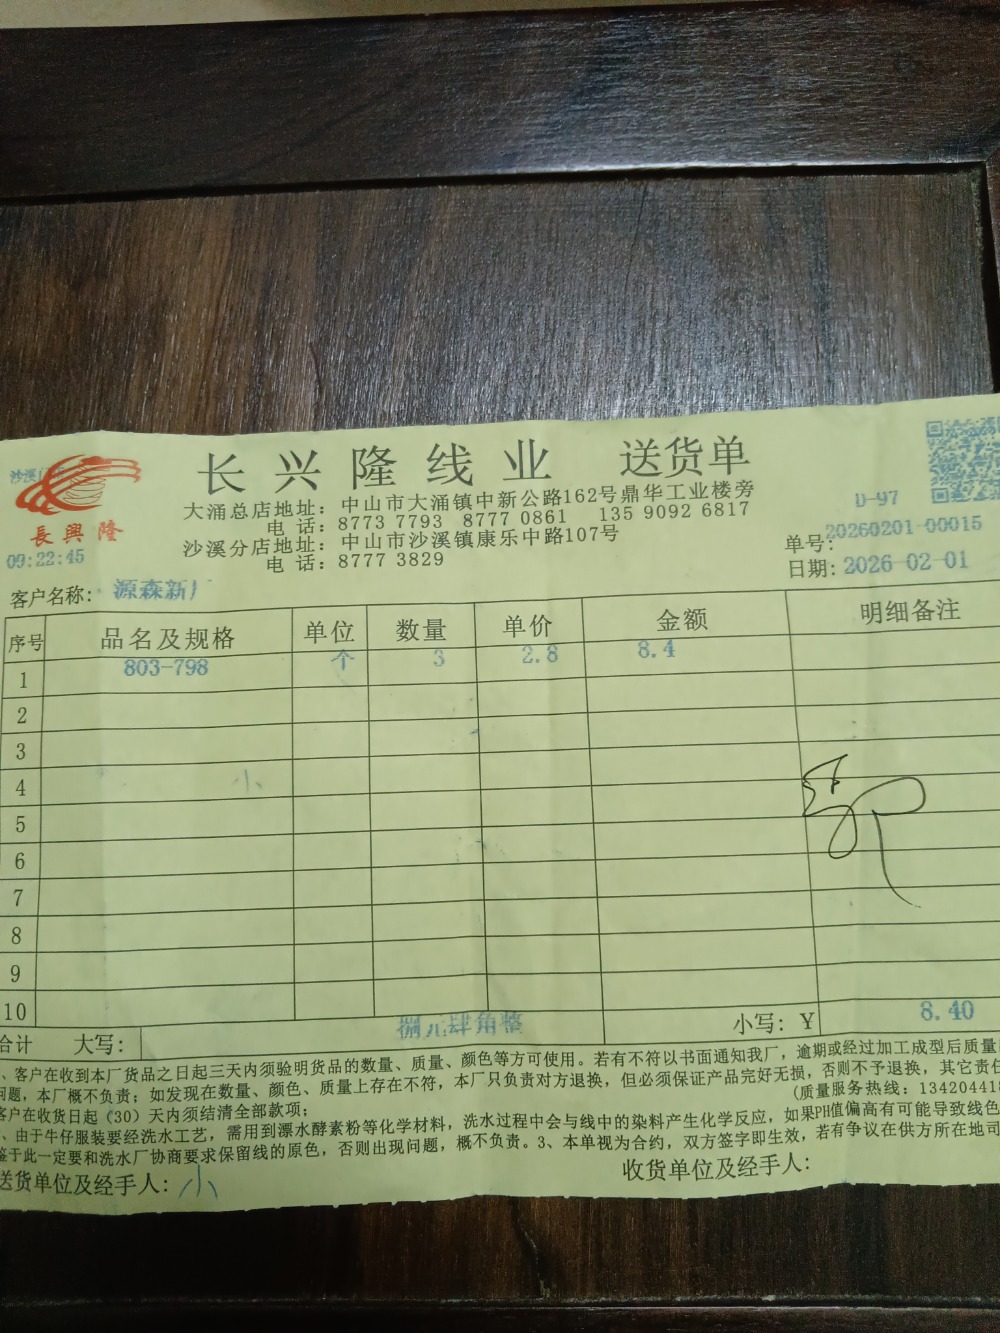 长兴隆线业 送货单
沙溪
長興隆
大涌总店地址：中山市大涌镇中新公路162号鼎华工业楼旁
电 话：8773 7793 8777 0861 135 9092 6817
沙溪分店地址：中山市沙溪镇康乐中路107号
电 话：8777 3829
09:22:45
D-97
单号：20260201-00015
日期：2026-02-01
客户名称：源森新厂
序号 品名及规格 单位 数量 单价 金额 明细备注
1 803-798 个 3 2.8 8.4
2
3
4
5
6
7
8
9
10
合计 大写： 捌元肆角整 小写：Y 8.40
、客户在收到本厂货品之日起三天内须验明货品的数量、质量、颜色等方可使用。若有不符以书面通知我厂，逾期或经过加工成型后质量
问题，本厂概不负责；如发现在数量、颜色、质量上存在不符，本厂只负责对方退换，但必须保证产品完好无损，否则不予退换，其它责任
客户在收货日起（30）天内须结清全部款项； （质量服务热线：134204418
、由于牛仔服装要经洗水工艺，需用到漂水酵素粉等化学材料，洗水过程中会与线中的染料产生化学反应，如果PH值偏高有可能导致线色
鉴于此一定要和洗水厂协商要求保留线的原色，否则出现问题，概不负责。3、本单视为合约，双方签字即生效，若有争议在供方所在地司
送货单位及经手人：小 收货单位及经手人：